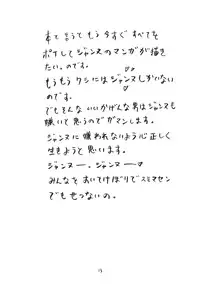 本と言うてもう今すぐすべてを
ポイしてジャンヌのマンガが描き
たい。のです。
もうもうワシにはジャンヌしかいない
のです。
でもそんないいかげんな男はジャンヌも
嫌いて思うのでガマンします。
ジャンヌに嫌われないよう心正しく
生きようと思います。
ジャンヌー。ジャンヌー♡
みんなをおいてけぼりでスミマセン
でももっつないの。